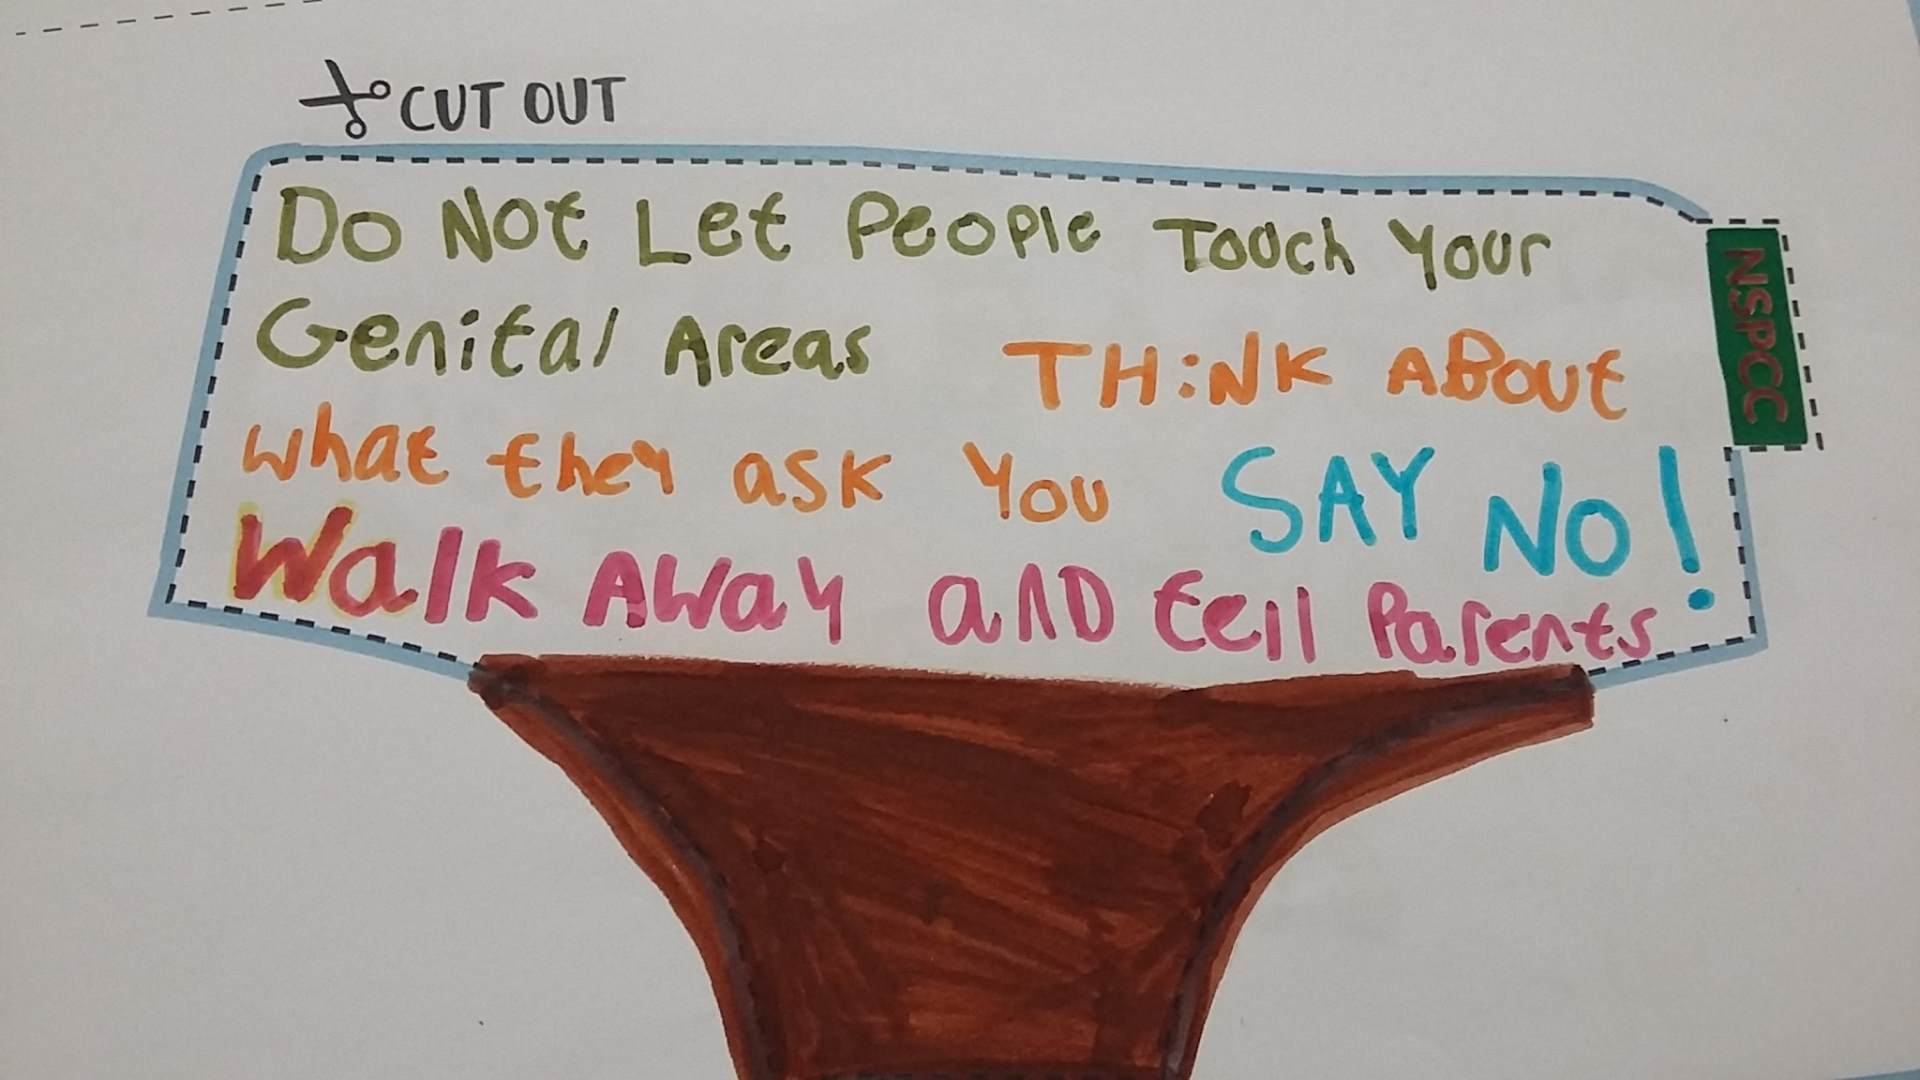 CUT OUT
Do Not Let People Touch Your
Genital Areas THiNK ABout
what they ask You SAY NO!
Walk AWay anD tell Parents
NSPCC